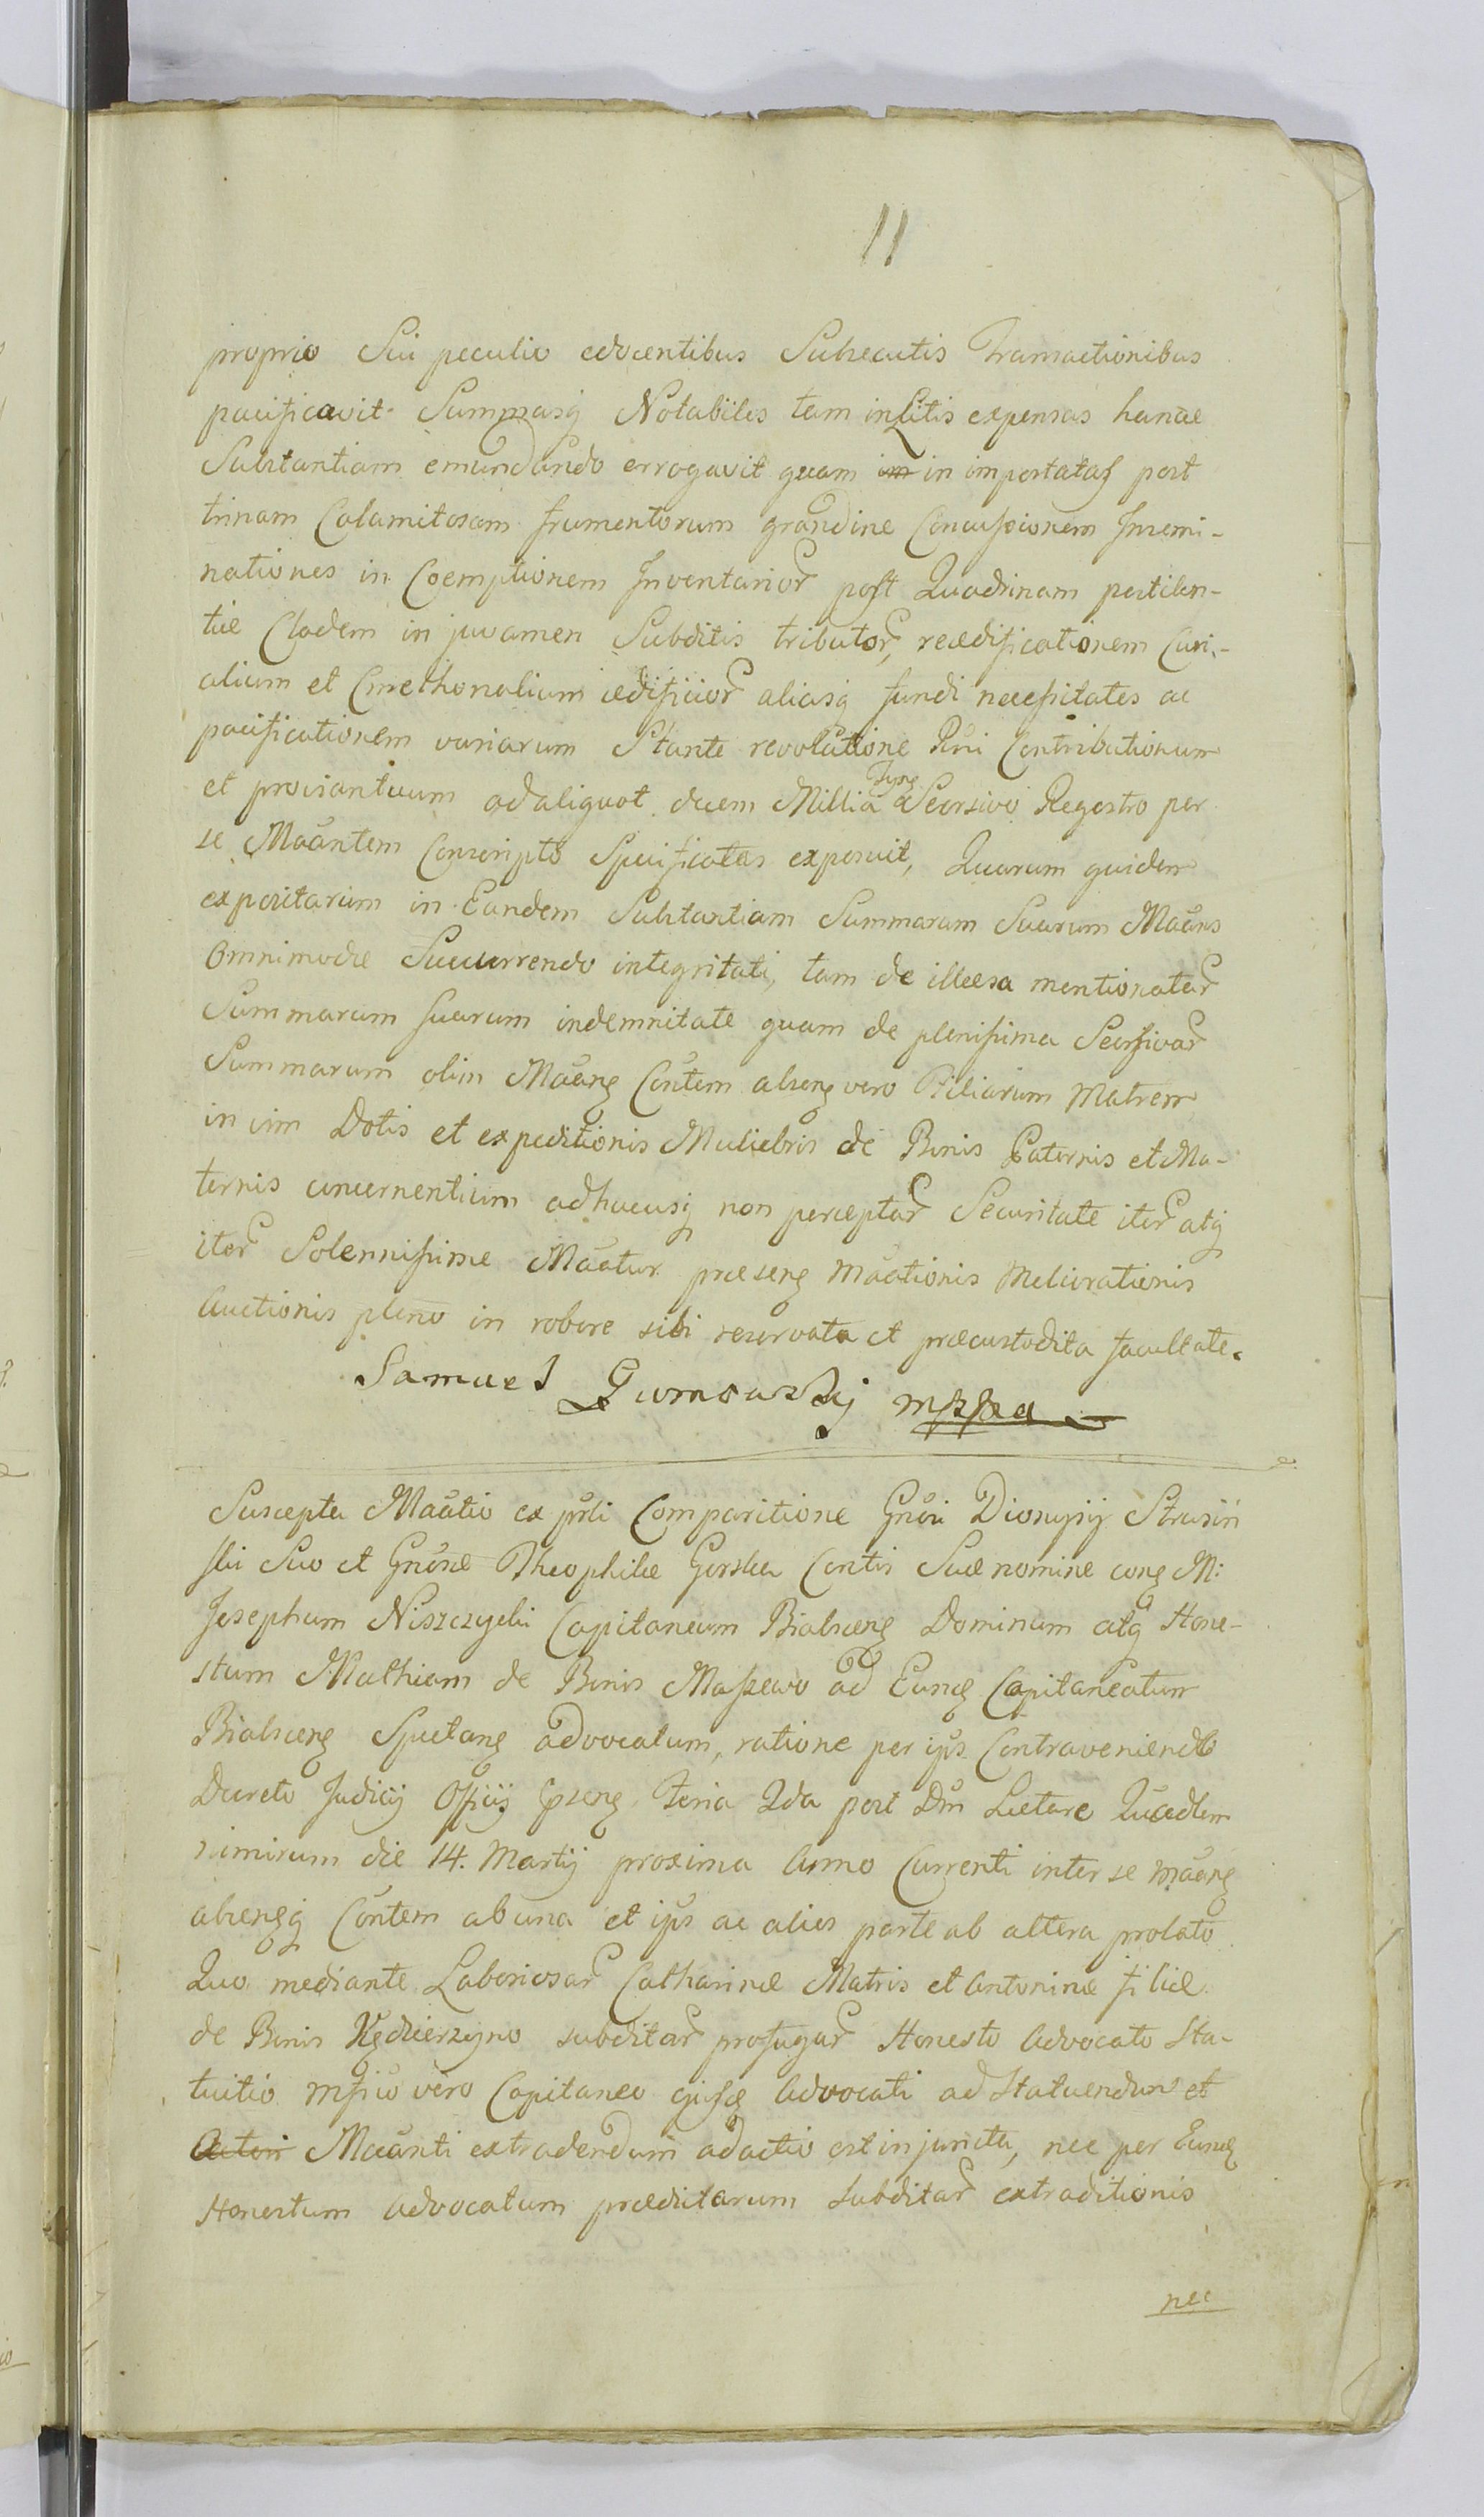 11
proprio Sui peculio edocentibus Subsecutis Transactionibus
pacificavit Summasq Notabiles tam in Litis expensas hancae
Substantiam emundando errogavit quam in importatas post
trinam Calamitosam frumentorum grandine Concussionem Insemi-
nationes in Coemptionem Inventarior post Quadrinam pestilen-
tiæ Cladem in juvamen Subditis tributor, reædificationem Curi-
alium et Cmethonalium ædificior aliasq fundi necessitates ac
pacificationem variarum Stante revolutione Rni Contributionum
et proviantuum ad aliquot decem Millia Tynf Seorsivo Regestro per
se Maantem Conscripto Specificatas exposuit, Quarum quidem
expositarum in Eandem Substantiam Summarum Suarum Maans
Omnimodæ Succurrendo integritati, tam de illæsa mentionatar
Summarum suarum indemnitate quam de plenissima Seorsivar
Summarum olim Maang Contem alseng vero Filiarum Matrem
in vim Dotis et expeditionis Muliebris de Bonis Paternis et Ma-
ternis concernentium adhucusq non perceptar Securitate iter atq
iter Solennissime Maatur præseng Maationis Meliorationis
Auctionis pleno in robore sibi reservata et præcustodita facultate.
Samuel Gurnowskj mppa
Suscepta Maatio ex prli Comparitione Gnoi Dionysij Strusin
ski Suo et Gnosæ Theophilæ Gorska Contis Suæ nomine cong M:
Josephum Niszczycki Capitaneum Bialseng Dominum atq Hone-
stum Mathiam de Bonis Maszewo ad Eund Capitaneatum
Bialseng Spectang advocatum, ratione per ips Contraveniend
Decreto Judicij Officij pseng Feria 2da post Dm Lætare Quadlem
nimirum die 14. Martij proxima Anno Currenti inter se maang
absengq Contem ab una et ips ac alios parte ab altera prolato
Quo mediante Laboriosar Catharinæ Matris et Antoninæ filiæ
de Bonis Kędzierzyno subditar profugar Honesto Advocato Sta-
tuitio Mfico vero Capitaneo ejusd Advocati ad Statuendum et
Actori Maanti extradendum adactio est injuncta, nec per Eund
Honestum Advocatum prædictarum Subditar extraditionis
nec